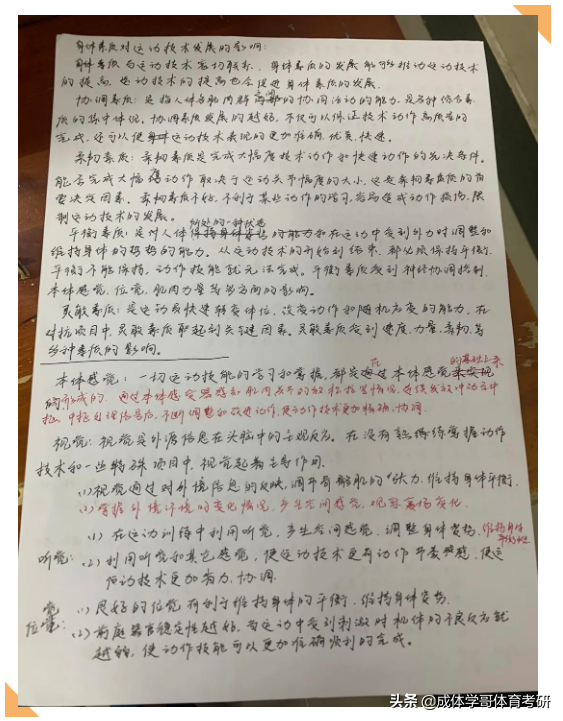 身体素质对运动技术发展的影响:
身体素质与运动技术密切联系,身体素质的发展能够推动运动技术
的提高,运动技术的提高也会促进身体素质的发展.
协调素质:是指人体各肌肉群间的协调活动的能力,是各种综合素
质的集中体现,协调素质发展的越好,不仅可以保证技术动作高质量的
完成,还可以使运动技术表现的更加准确,优美,快速.
柔韧素质:柔韧素质是完成大幅度技术动作和快速动作的先决条件.
能否完成大幅度动作取决于运动关节幅度的大小,这是柔韧素质的首
要决定因素.柔韧素质不好,不利于某些动作的学习,容易造成动作损伤,限
制运动技术的发展.
所处的一种状态
平衡素质:是对人体保持身体姿势的能力和在运动中受到外力时调整和
维持身体的姿势的能力.从运动技术的开始到结束,都必须保持平衡.
平衡不能保持,动作技能就无法完成.平衡素质受到神经协调控制,
本体感觉,位觉,肌肉力量等多方面的影响.
灵敏素质:是运动员快速转变体位,改变动作和随机应变的能力,在
对抗项目中,灵敏素质取起到关键因素.灵敏素质受到速度,力量,柔韧,等
多种素质的影响.
本体感觉:一切运动技能的学习和掌握,都是在本体感觉的基础上来
形成的.通过本体感受器感知肌肉
中枢,中枢处理信息后,不断调整和改进动作,使动作技术更加精确,协调.
视觉:视觉是外源信息在头脑中的主观反应.在没有熟练掌握动作
技术和一些特殊项目中,视觉起着主导作用.
(1)视觉通过对外境信息的反映,调节骨骼肌的张力,维持身体平衡.
(2)掌握外境环境的变化情况,产生空间感觉,观察赛场变化.
(1)在运动训练中利用听觉,产生空间感觉,调整身体姿势,维持身体
平衡
听觉:(2)利用听觉和其它感觉,使运动技术更有动作节奏感,使运
动技术更加省力,协调.
位觉:(1)良好的位觉有利于维持身体的平衡,维持身体姿势.
(2)前庭器官稳定性越好,当运动中受到刺激时机体的不良反应就
越弱,使动作技能可以更加准确顺利的完成.
头条 @成体学哥体育考研